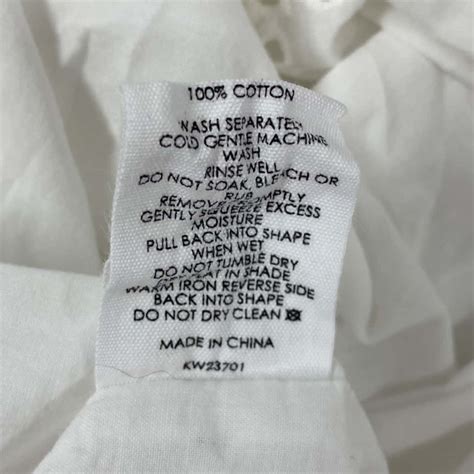 100% COTTON
WASH SEPARATELY
COLD GENTLE MACHINE
WASH
RINSE WELL
DO NOT SOAK, BLEACH OR
RUB
REMOVE PROMPTLY
GENTLY SQUEEZE EXCESS
MOISTURE
PULL BACK INTO SHAPE
WHEN WET
DO NOT TUMBLE DRY
DRY FLAT IN SHADE
WARM IRON REVERSE SIDE
BACK INTO SHAPE
DO NOT DRY CLEAN
MADE IN CHINA
KW23701